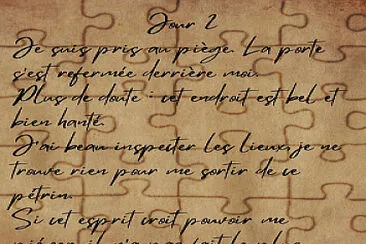 Jour 2
Je suis pris au piège. La porte
s'est refermée derrière moi.
Plus de doute : cet endroit est bel et
bien hanté.
J'ai beau inspecter les lieux, je ne
trouve rien pour me sortir de ce
pétrin.
Si cet esprit croit pouvoir me